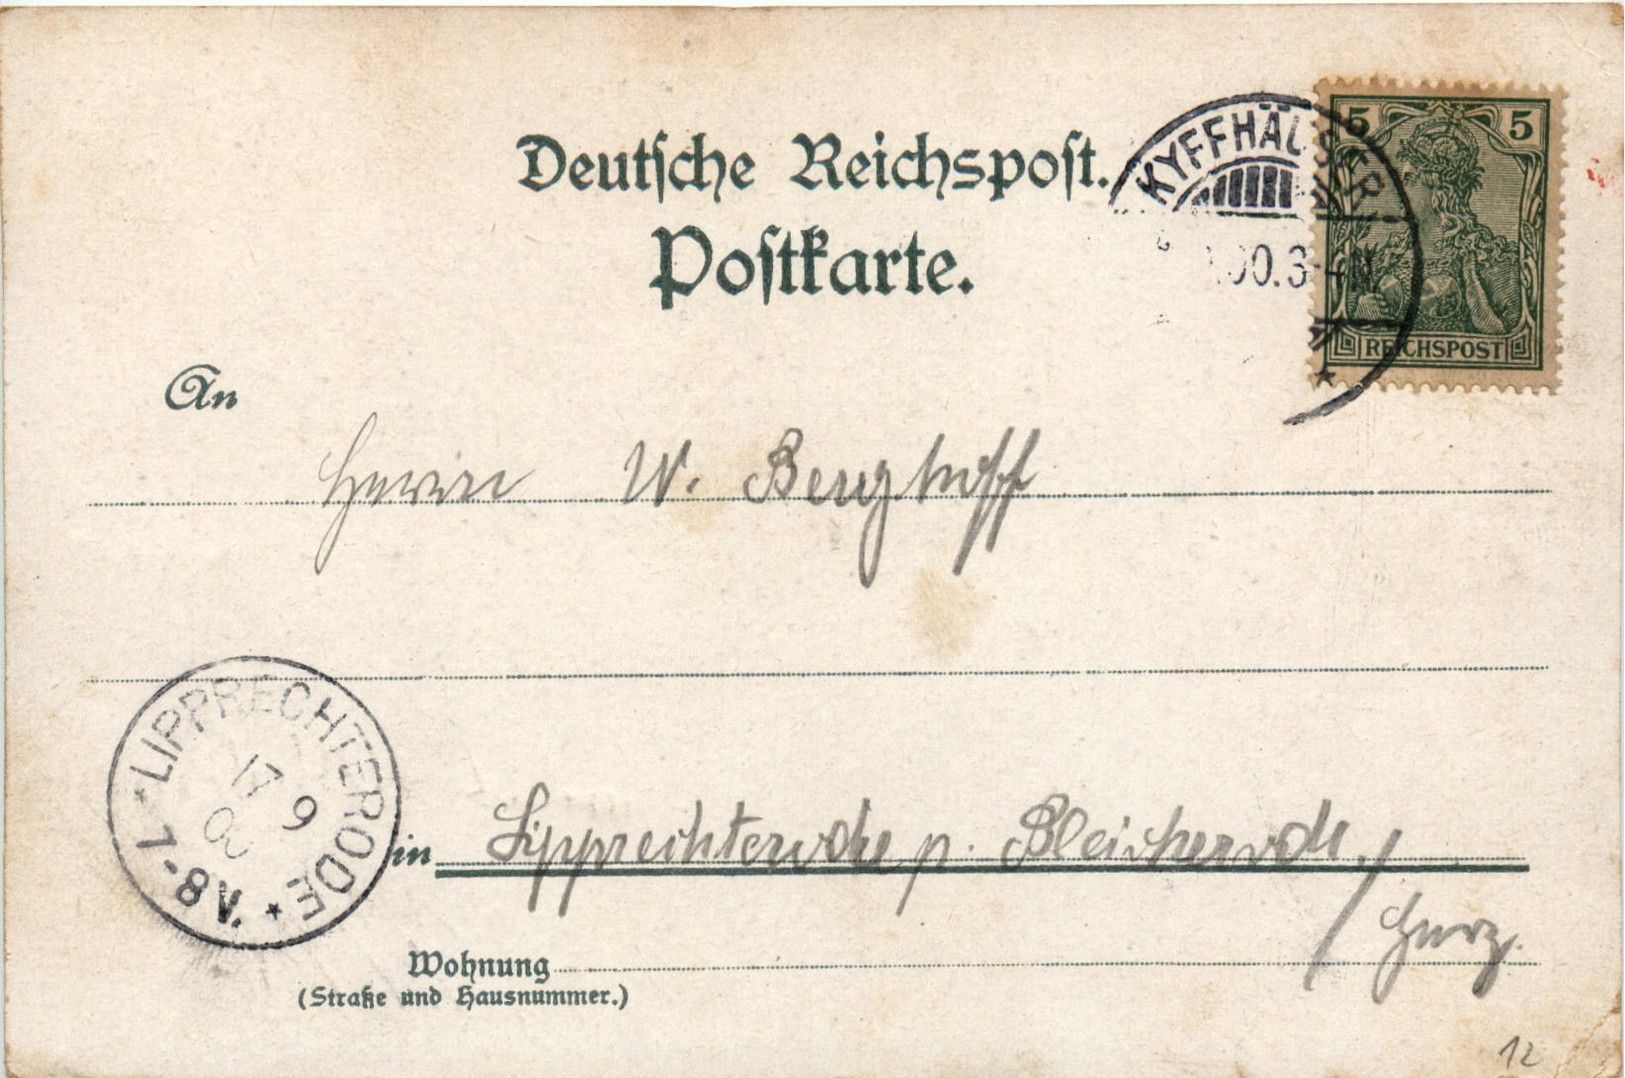 Deutsche Reichspost.
Postkarte.
KYFFHÄUSER
.00.3-4N
5 5
REICHSPOST
An
Herrn W. Berghoff
LIPPRECHTERODE
17 9
00
7-8V.
in Lipprechterode p. Bleicherode,
Harz.
Wohnung
(Straße und Hausnummer.)
12